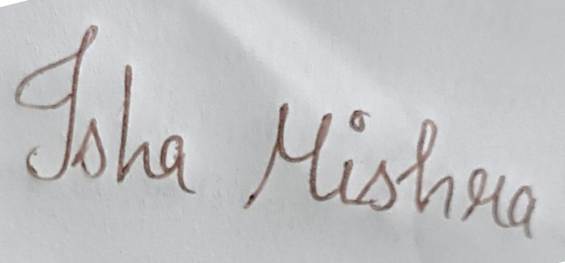 Isha Mishra